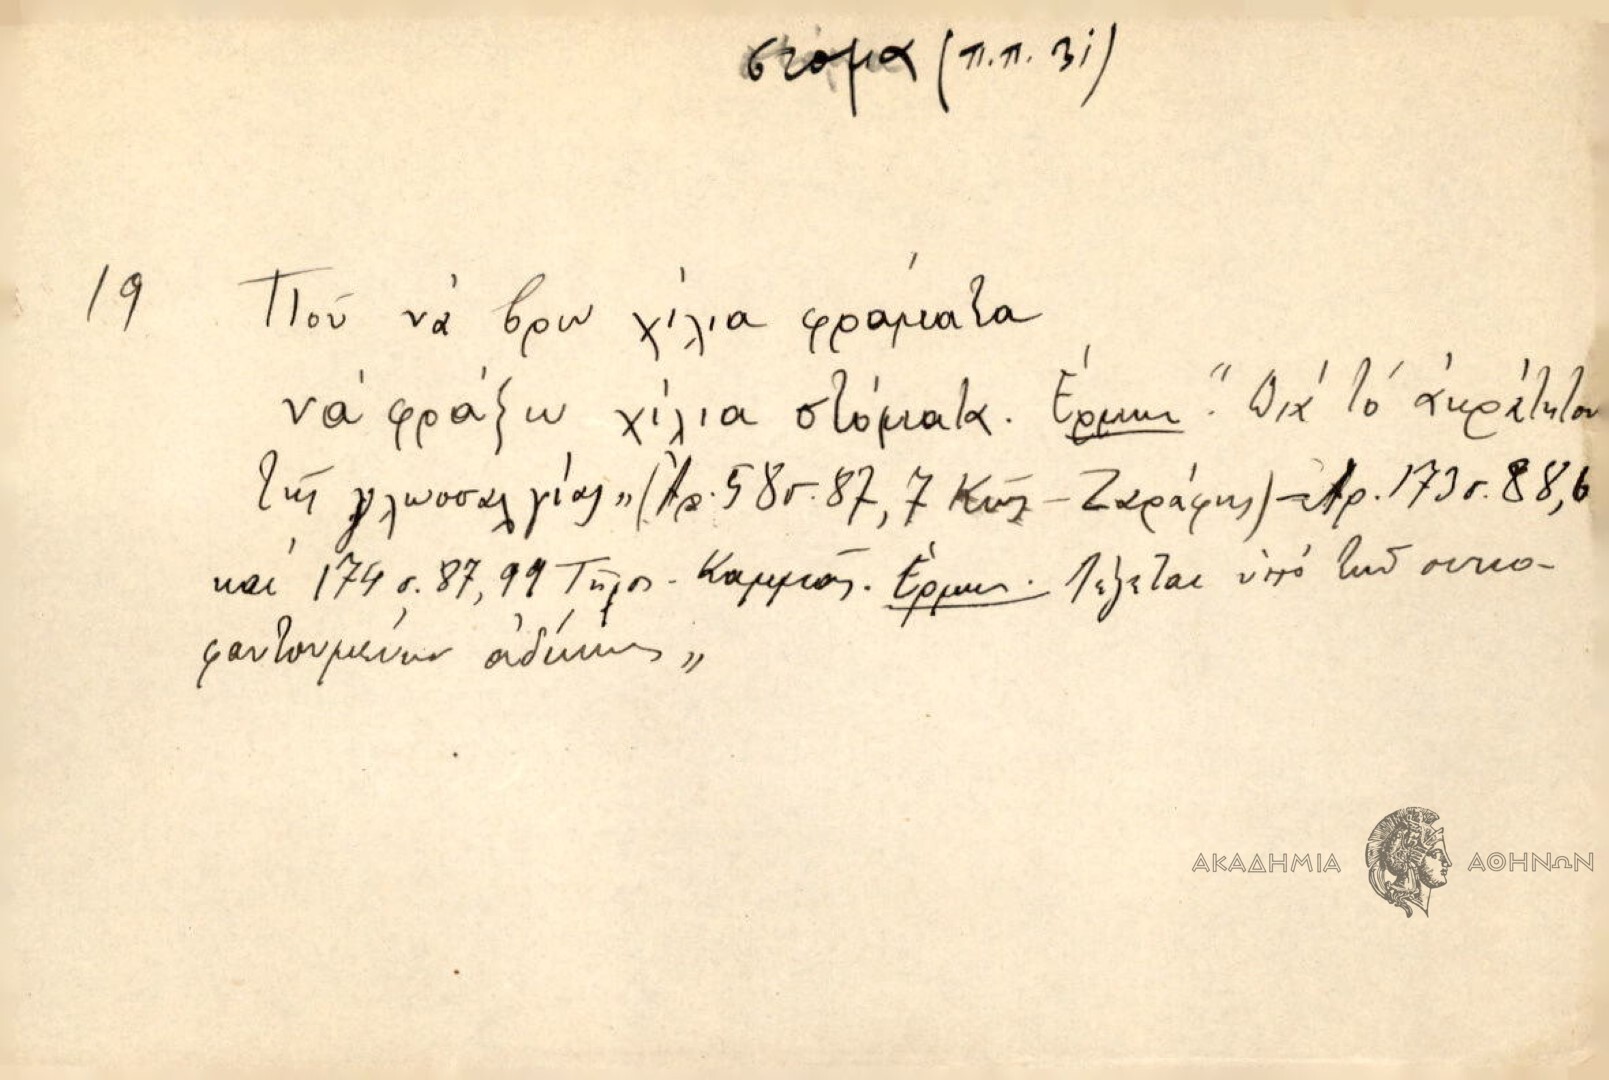 στομα (π.π. 31)
19 Ποῦ νά βρω χίλια φράματα
νά φράξω χίλια στόματα. Ἑρμην. " Διά τό ἀκράτητον
τῆς γλωσσαλγίας „ (Ἀρ. 58 σ. 87, 7 Κῶς - Ζαράφτης) - Ἀρ. 173 σ. 88, 6
καί 174 σ. 87, 99 Τῆλος - Καμμᾶς. Ἑρμην. Λέγεται ὑπό τῶν συκο-
φαντουμένων ἀδίκως „
ΑΚΑΔΗΜΙΑ ΑΘΗΝΩΝ